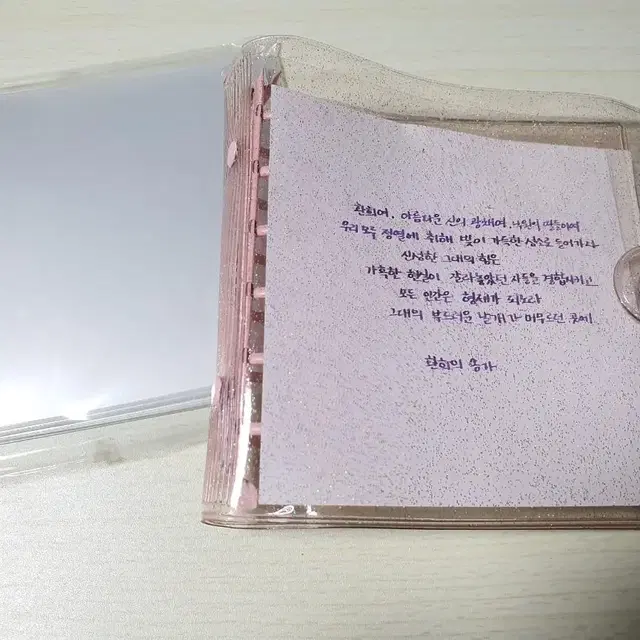 환희여, 아름다운 신의 광채여, 낙원의 딸들이여
우리 모두 정열에 취해 빛이 가득한 성소로 들어가자
신성한 그대의 힘은
가혹한 현실이 갈라놓았던 자들을 결합시키고
모든 인간은 형제가 되노라
그대의 부드러운 날개가 머무르는 곳에
환희의 송가